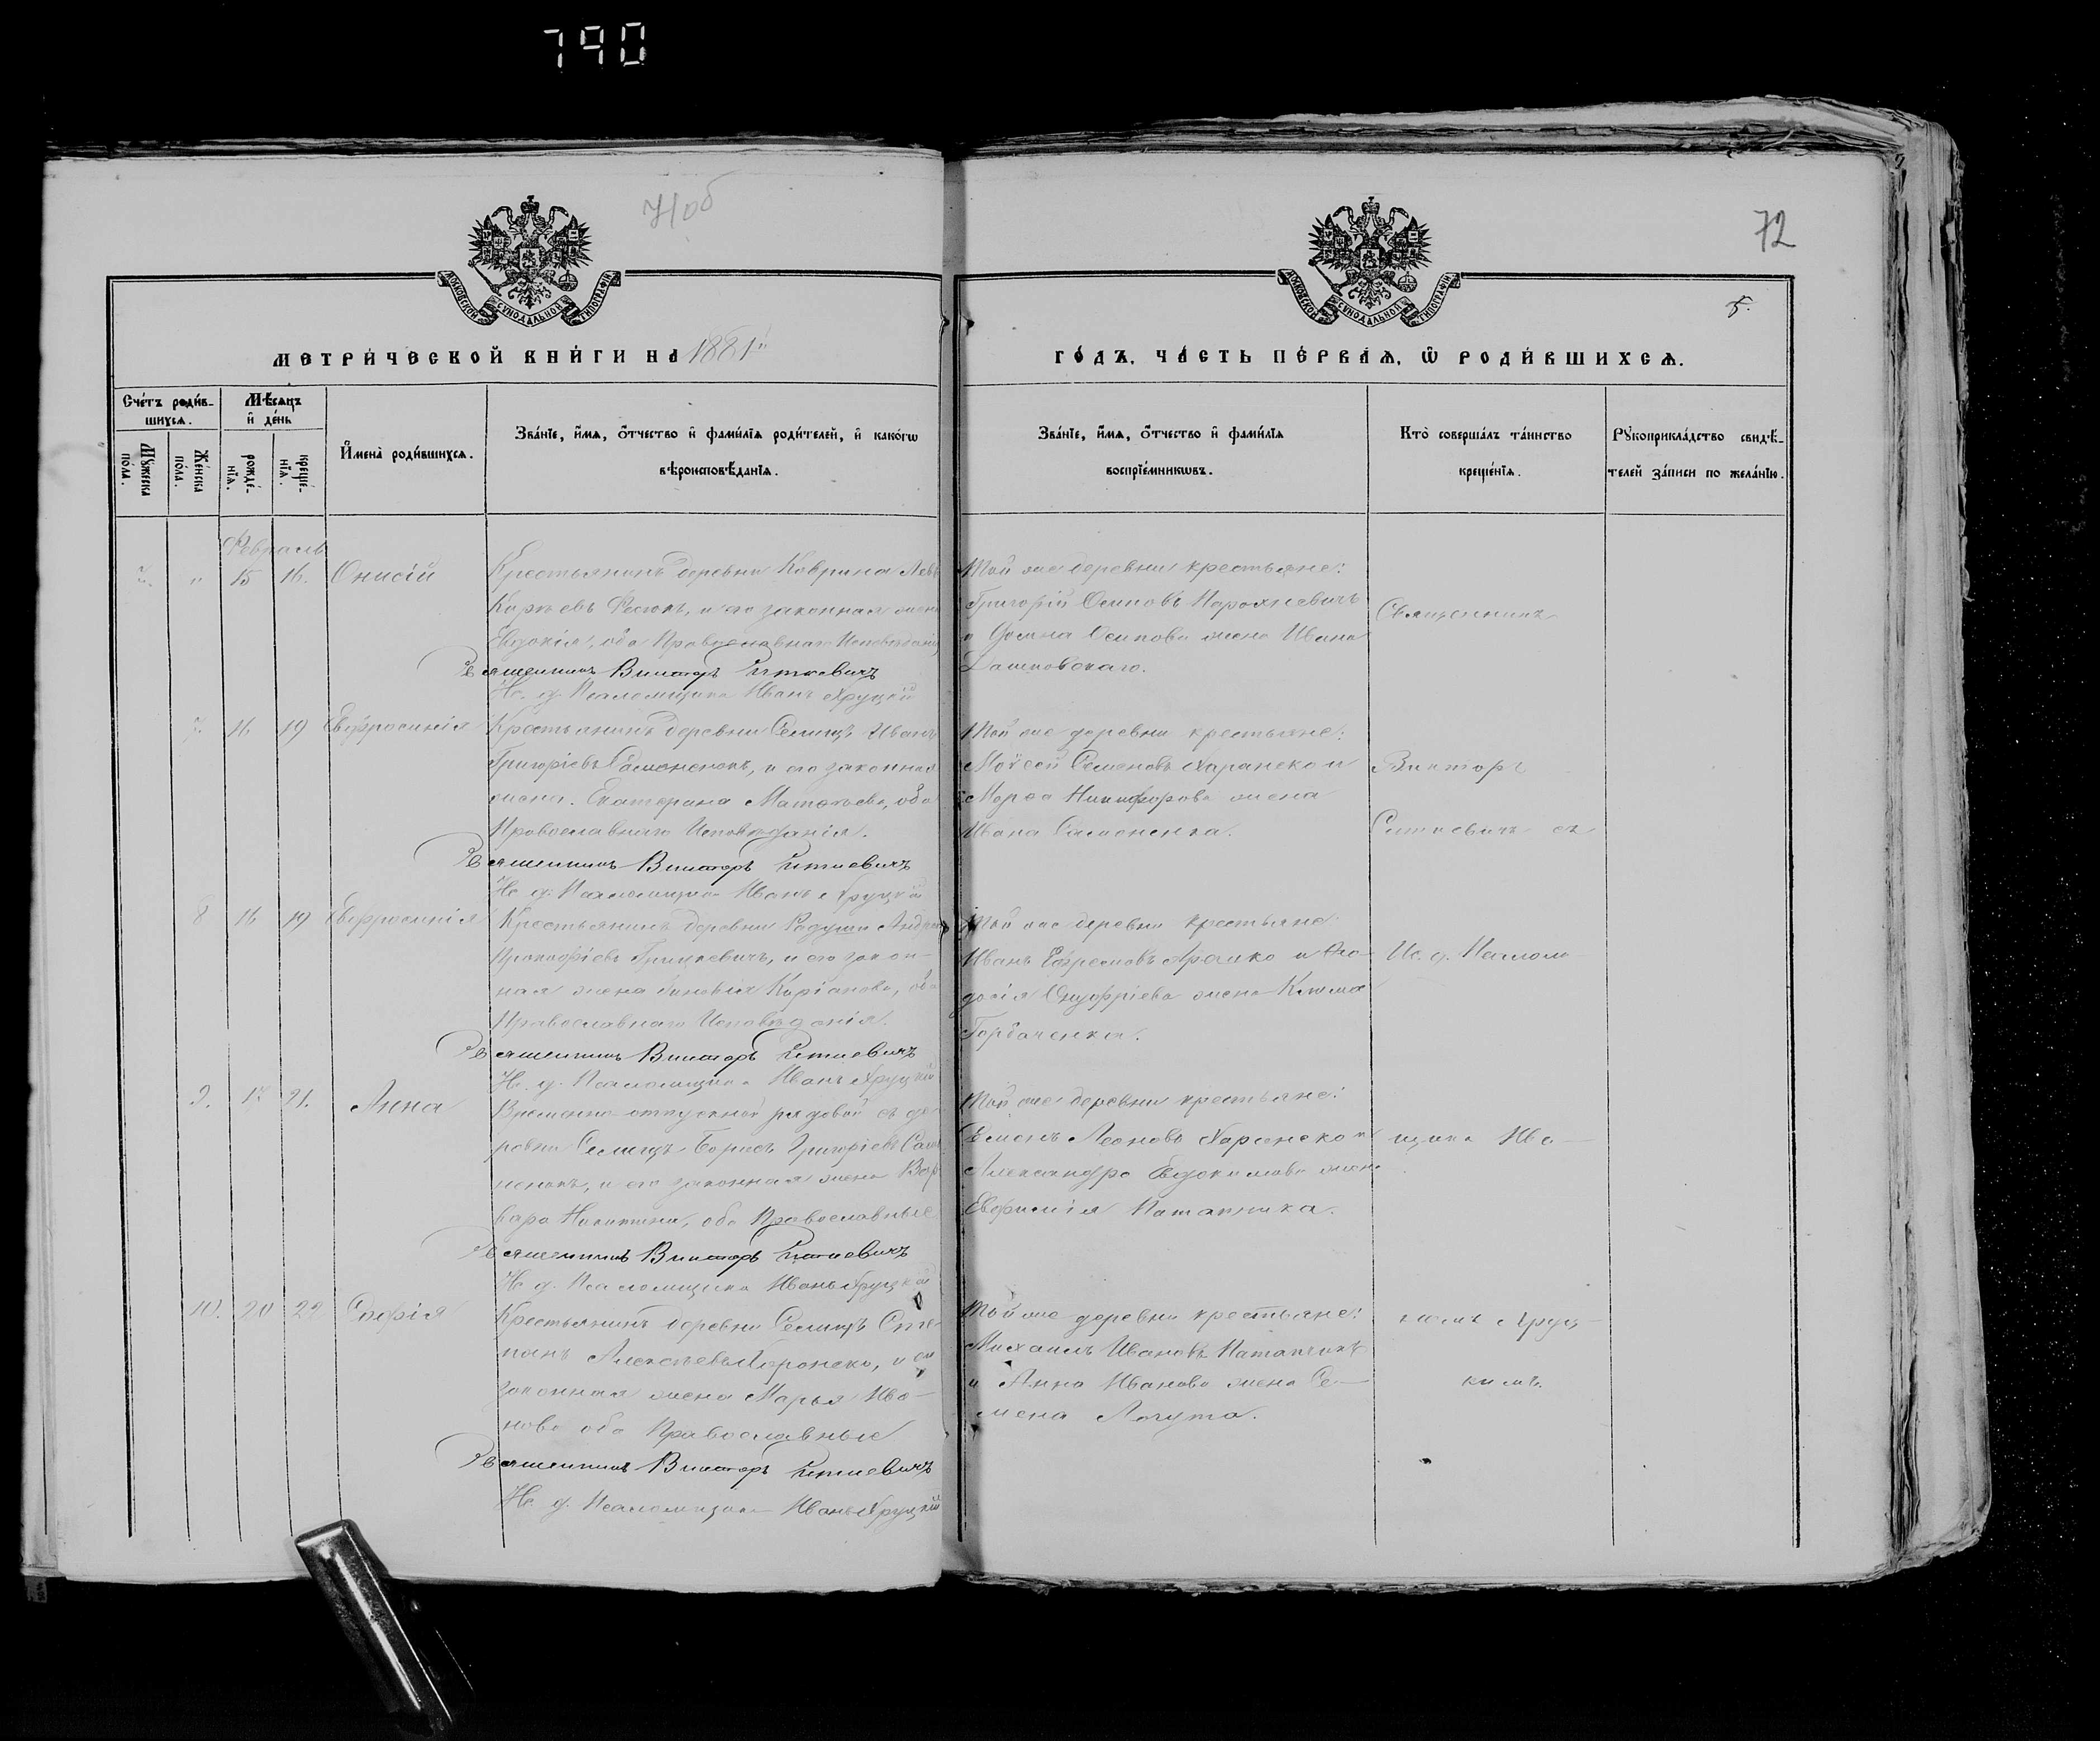 790
71 об
72
5.
МОСКОВСКОЙ СѴНОДАЛЬНОЙ ТИПОГРАФІИ
МОСКОВСКОЙ СѴНОДАЛЬНОЙ ТИПОГРАФІИ
МЕТРИ́ЧЕСКОЙ КНИ́ГИ НА 1881й
ГО́ДЪ, ЧА́СТЬ ПЕ́РВАѦ, Ѡ РОДИ́ВШИХСѦ.
Сче́тъ роди́в-
шихсѧ.
Мѣ́сѧцъ
и҆ де́нь
Мꙋ́жеска
по́ла.
Же́нска
по́ла.
рожде́-
нїѧ.
креще́-
нїѧ.
И҆мена̀ роди́вшихсѧ.
Зва́нїе, и҆́мѧ, ѻ҆́тчество и҆ фами́лїѧ роди́телей, и҆ како́гѡ
вѣроисповѣ́данїѧ.
Зва́нїе, и҆́мѧ, ѻ҆́тчество и҆ фами́лїѧ
воспрїе́мникѡвъ.
Кто̀ соверша́лъ та́инство
креще́нїѧ.
Рꙋкоприкла́дство свидѣ́-
телей за́писи по жела́нїю.
Февраль
15 16. Онисій
Крестьянинъ деревни Коврина Левъ
и его законная жена
Евдокія, оба Православнаго Исповѣданія
Священникъ Викторъ Ситкевичъ
И. д. Псаломщика Иванъ Хруцкій
Той же деревни крестьяне:
Григорій Осиповъ
и Домна Осипова жена Ивана
Дашковскаго.
Священникъ
7. 16 19 Евфросинія
Крестьянинъ деревни Селищъ Иванъ
Григоріевъ Самоненокъ, и его законная
жена Екатерина Матвѣева, оба
Православнаго Исповѣданія.
Священникъ Викторъ Ситкевичъ
И. д. Псаломщика Иванъ Хруцкій
Той же деревни крестьяне:
Моѵсей Семеновъ Харанеко и
Марѳа Никифорова жена
Ивана Самоненка.
Викторъ
Ситкевичъ съ
8 16 19 Евфросинія
Крестьянинъ деревни Радуши Андрей
Прокофіевъ Гринкевичъ, и его закон-
ная жена Зиновія Кирианова, оба
Православнаго Исповѣданія.
Священникъ Викторъ Ситкевичъ
И. д. Псаломщика Иванъ Хруцкій
Той же деревни крестьяне:
Иванъ Ефремовъ и Ѳео-
досія Онуфріева жена Клима
Горбаченка.
Ис. д. Псалом-
9. 17 21. Анна
Временно-отпускной рядовой съ де-
ревни Селищъ Борисъ Григоріевъ Само-
ненокъ, и его законная жена Вар-
вара Никитина, оба Православные
Священникъ Викторъ Ситкевичъ
И. д. Псаломщика Иванъ Хруцкій
Той же деревни крестьяне:
Семенъ Леоновъ Харанеко и
Александра Евдокимова жена
Евфимія Потапчика.
щика Ива-
10. 20 22 Софія
Крестьянинъ деревни Селищъ Сте-
панъ Алексѣевъ Хоронеко, и его
законная жена Марья Ива-
нова оба Православные
Священникъ Викторъ Ситкевичъ
И. д. Псаломщика Иванъ Хруцкій
Той же деревни крестьяне:
Михаилъ Ивановъ Потапчикъ
и Анна Иванова жена Се-
мена Логута.
номъ Хруц-
кимъ.